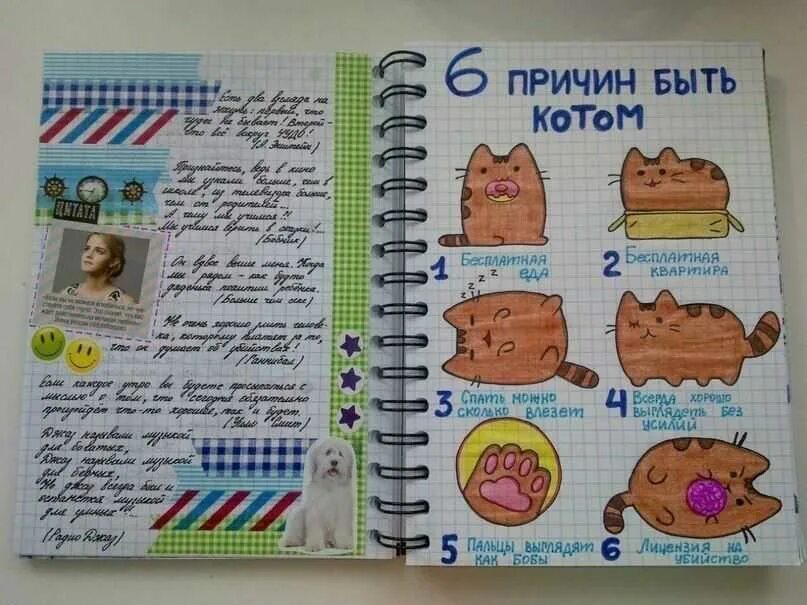 Есть два взгляда на
жизнь: первый, что
чудес не бывает! Второй -
что всё вокруг ЧУДО!
(А. Эйнштейн)
Признайтесь, ведь в кино
мы узнали больше, чем в
школе, из телевизора больше,
чем от родителей...
А чему мы учимся?!
Мы учимся верить в сказки!...
(Бобник)
ЦИТАТА
Он вдвое выше меня. Когда
мы рядом - как будто
дяденька похитил ребёнка.
(Больше чем секс)
Не очень хорошо злить челове-
ка, которому платят за то,
что он думает об убийствах!
(Ганнибал)
Если каждое утро вы будете просыпаться с
мыслью о том, что сегодня обязательно
произойдёт что-то хорошее, так и будет.
(Уилл Смит)
Джаз называли музыкой
для богатых,
Джаз называли музыкой
для бедных.
Но джаз всегда был и
останется музыкой
для умных!!!
(Радио Джаз)
6 ПРИЧИН БЫТЬ
КОТОМ
1 Бесплатная
еда
2 Бесплатная
квартира
z z z
3 Спать можно
сколько влезет
4 Всегда хорошо
выглядеть без
усилий
5 Пальцы выглядят
как бобы
6 Лицензия на
убийство